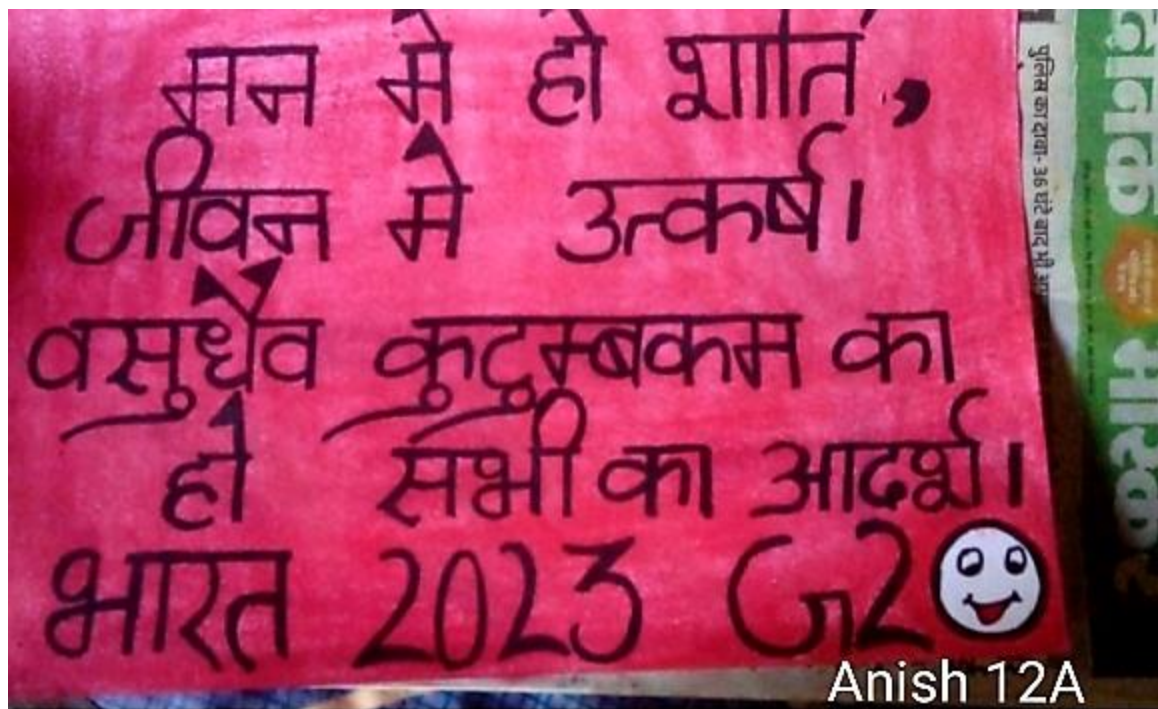 मन मे हो शाति,
जीवन मे उत्कर्ष।
वसुधैव कुटुम्बकम का
हो सभी का आदर्श।
भारत 2023 G20
Anish 12A
पुलिस का दावा- 36 घंटे बाद भी
दैनिक भास्कर